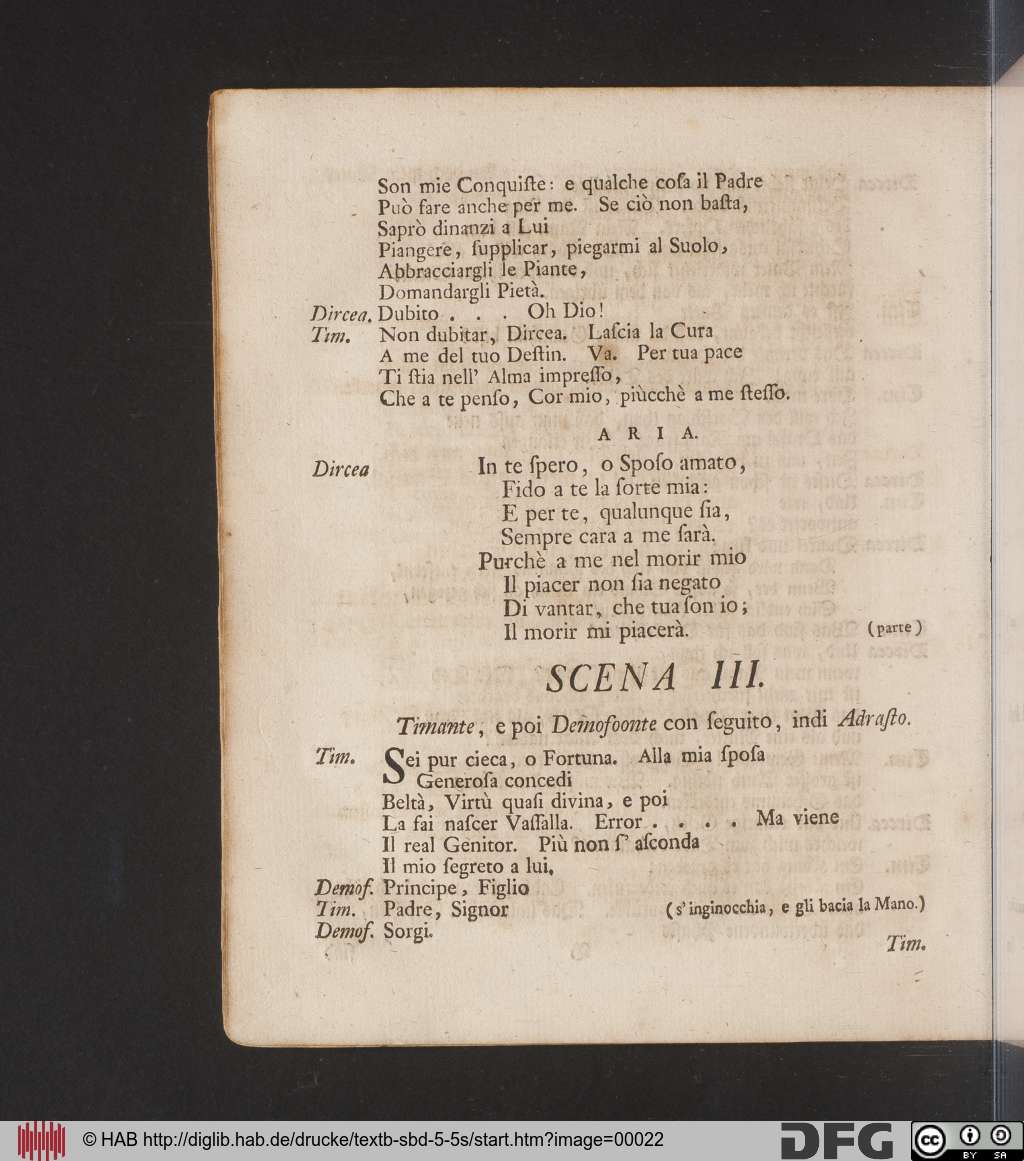 Son mie Conquiſte: e qualche coſa il Padre
Può fare anche per me. Se ciò non baſta,
Saprò dinanzi a Lui
Piangere, ſupplicar, piegarmi al Suolo,
Abbracciargli le Piante,
Domandargli Pietà.
Dircea. Dubito . . . Oh Dio!
Tim. Non dubitar, Dircea. Laſcia la Cura
A me del tuo Deſtin. Va. Per tua pace
Ti ſtia nell' Alma impreſſo,
Che a te penſo, Cor mio, piùcchè a me ſteſſo.
ARIA.
Dircea In te ſpero, o Spoſo amato,
Fido a te la ſorte mia:
E per te, qualunque ſia,
Sempre cara a me ſarà.
Purchè a me nel morir mio
Il piacer non ſia negato
Di vantar, che tua ſon io;
Il morir mi piacerà. (parte)
SCENA III.
Timante, e poi Demofoonte con ſeguito, indi Adraſto.
Tim. Sei pur cieca, o Fortuna. Alla mia ſpoſa
Generoſa concedi
Beltà, Virtù quaſi divina, e poi
La fai naſcer Vaſſalla. Error . . . . Ma viene
Il real Genitor. Più non ſ' aſconda
Il mio ſegreto a lui.
Demof. Principe, Figlio
Tim. Padre, Signor (s' inginocchia, e gli bacia la Mano.)
Demof. Sorgi.
Tim.
© HAB http://diglib.hab.de/drucke/textb-sbd-5-5s/start.htm?image=00022
DFG
cc BY SA